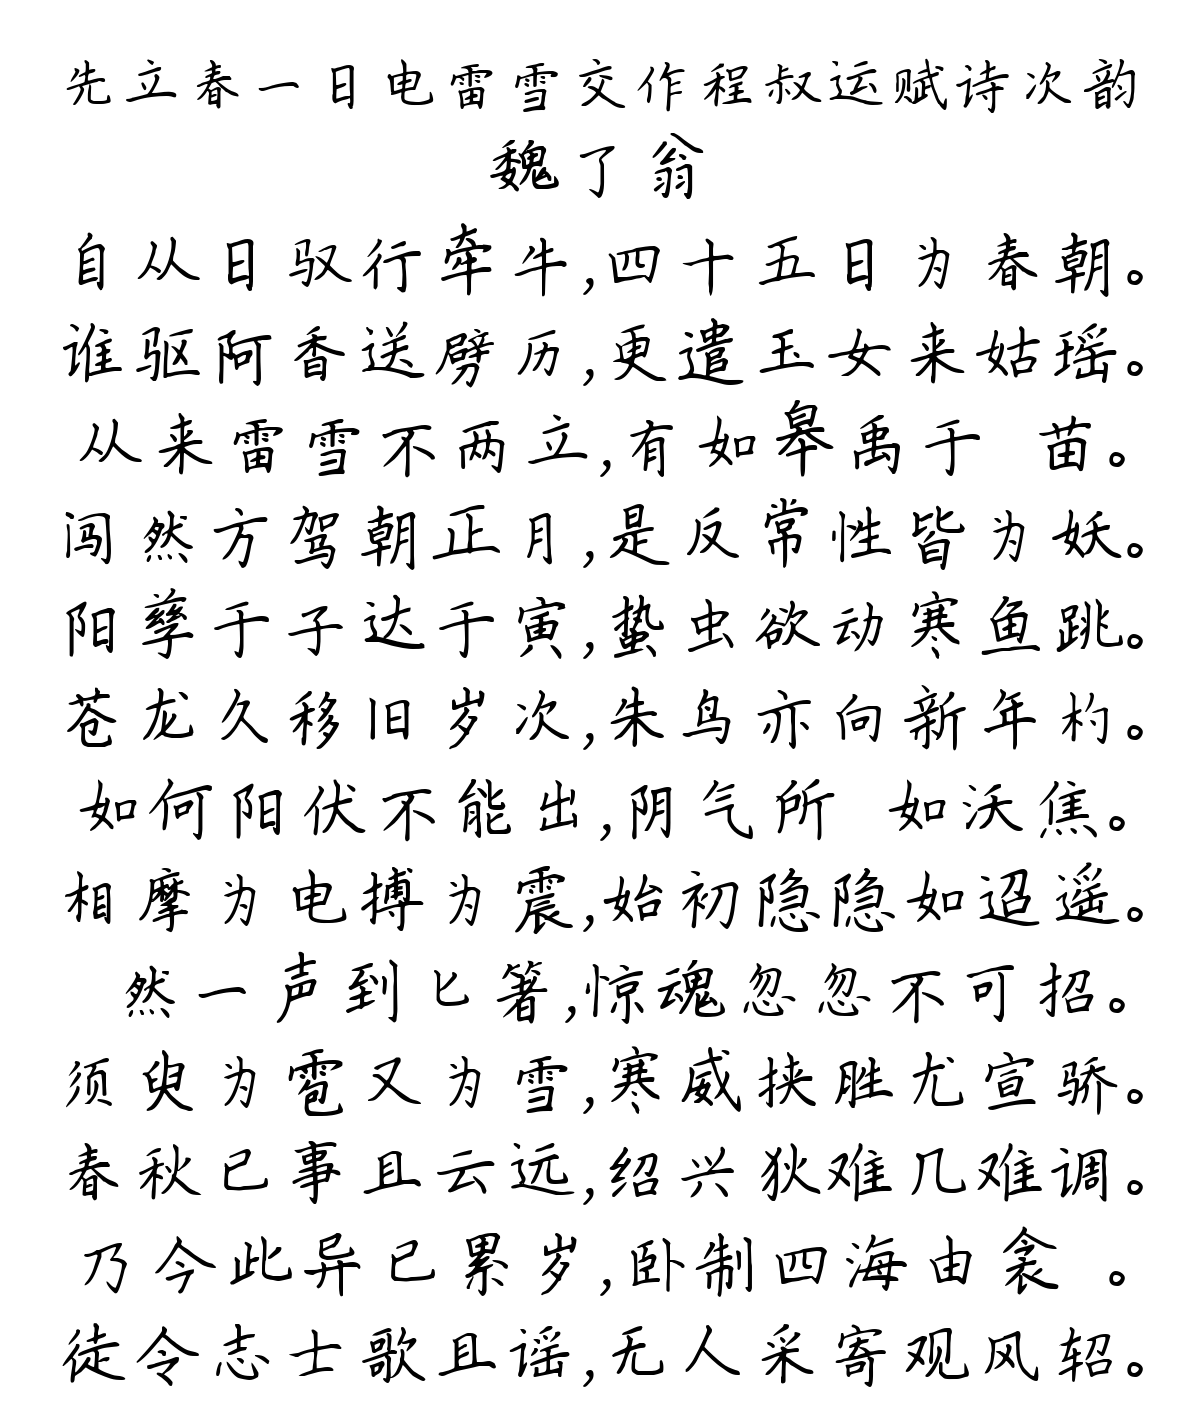 先立春一日电雷雪交作程叔运赋诗次韵
魏了翁
自从日驭行牵牛,四十五日为春朝。
谁驱阿香送劈历,更遣玉女来姑瑶。
从来雷雪不两立,有如皋禹于 苗。
闯然方驾朝正月,是反常性皆为妖。
阳孳于子达于寅,蛰虫欲动寒鱼跳。
苍龙久移旧岁次,朱鸟亦向新年杓。
如何阳伏不能出,阴气所 如沃焦。
相摩为电搏为震,始初隐隐如迢遥。
然一声到匕箸,惊魂忽忽不可招。
须臾为雹又为雪,寒威挟胜尤宣骄。
春秋已事且云远,绍兴狄难几难调。
乃今此异已累岁,卧制四海由衾 。
徒令志士歌且谣,无人采寄观风轺。